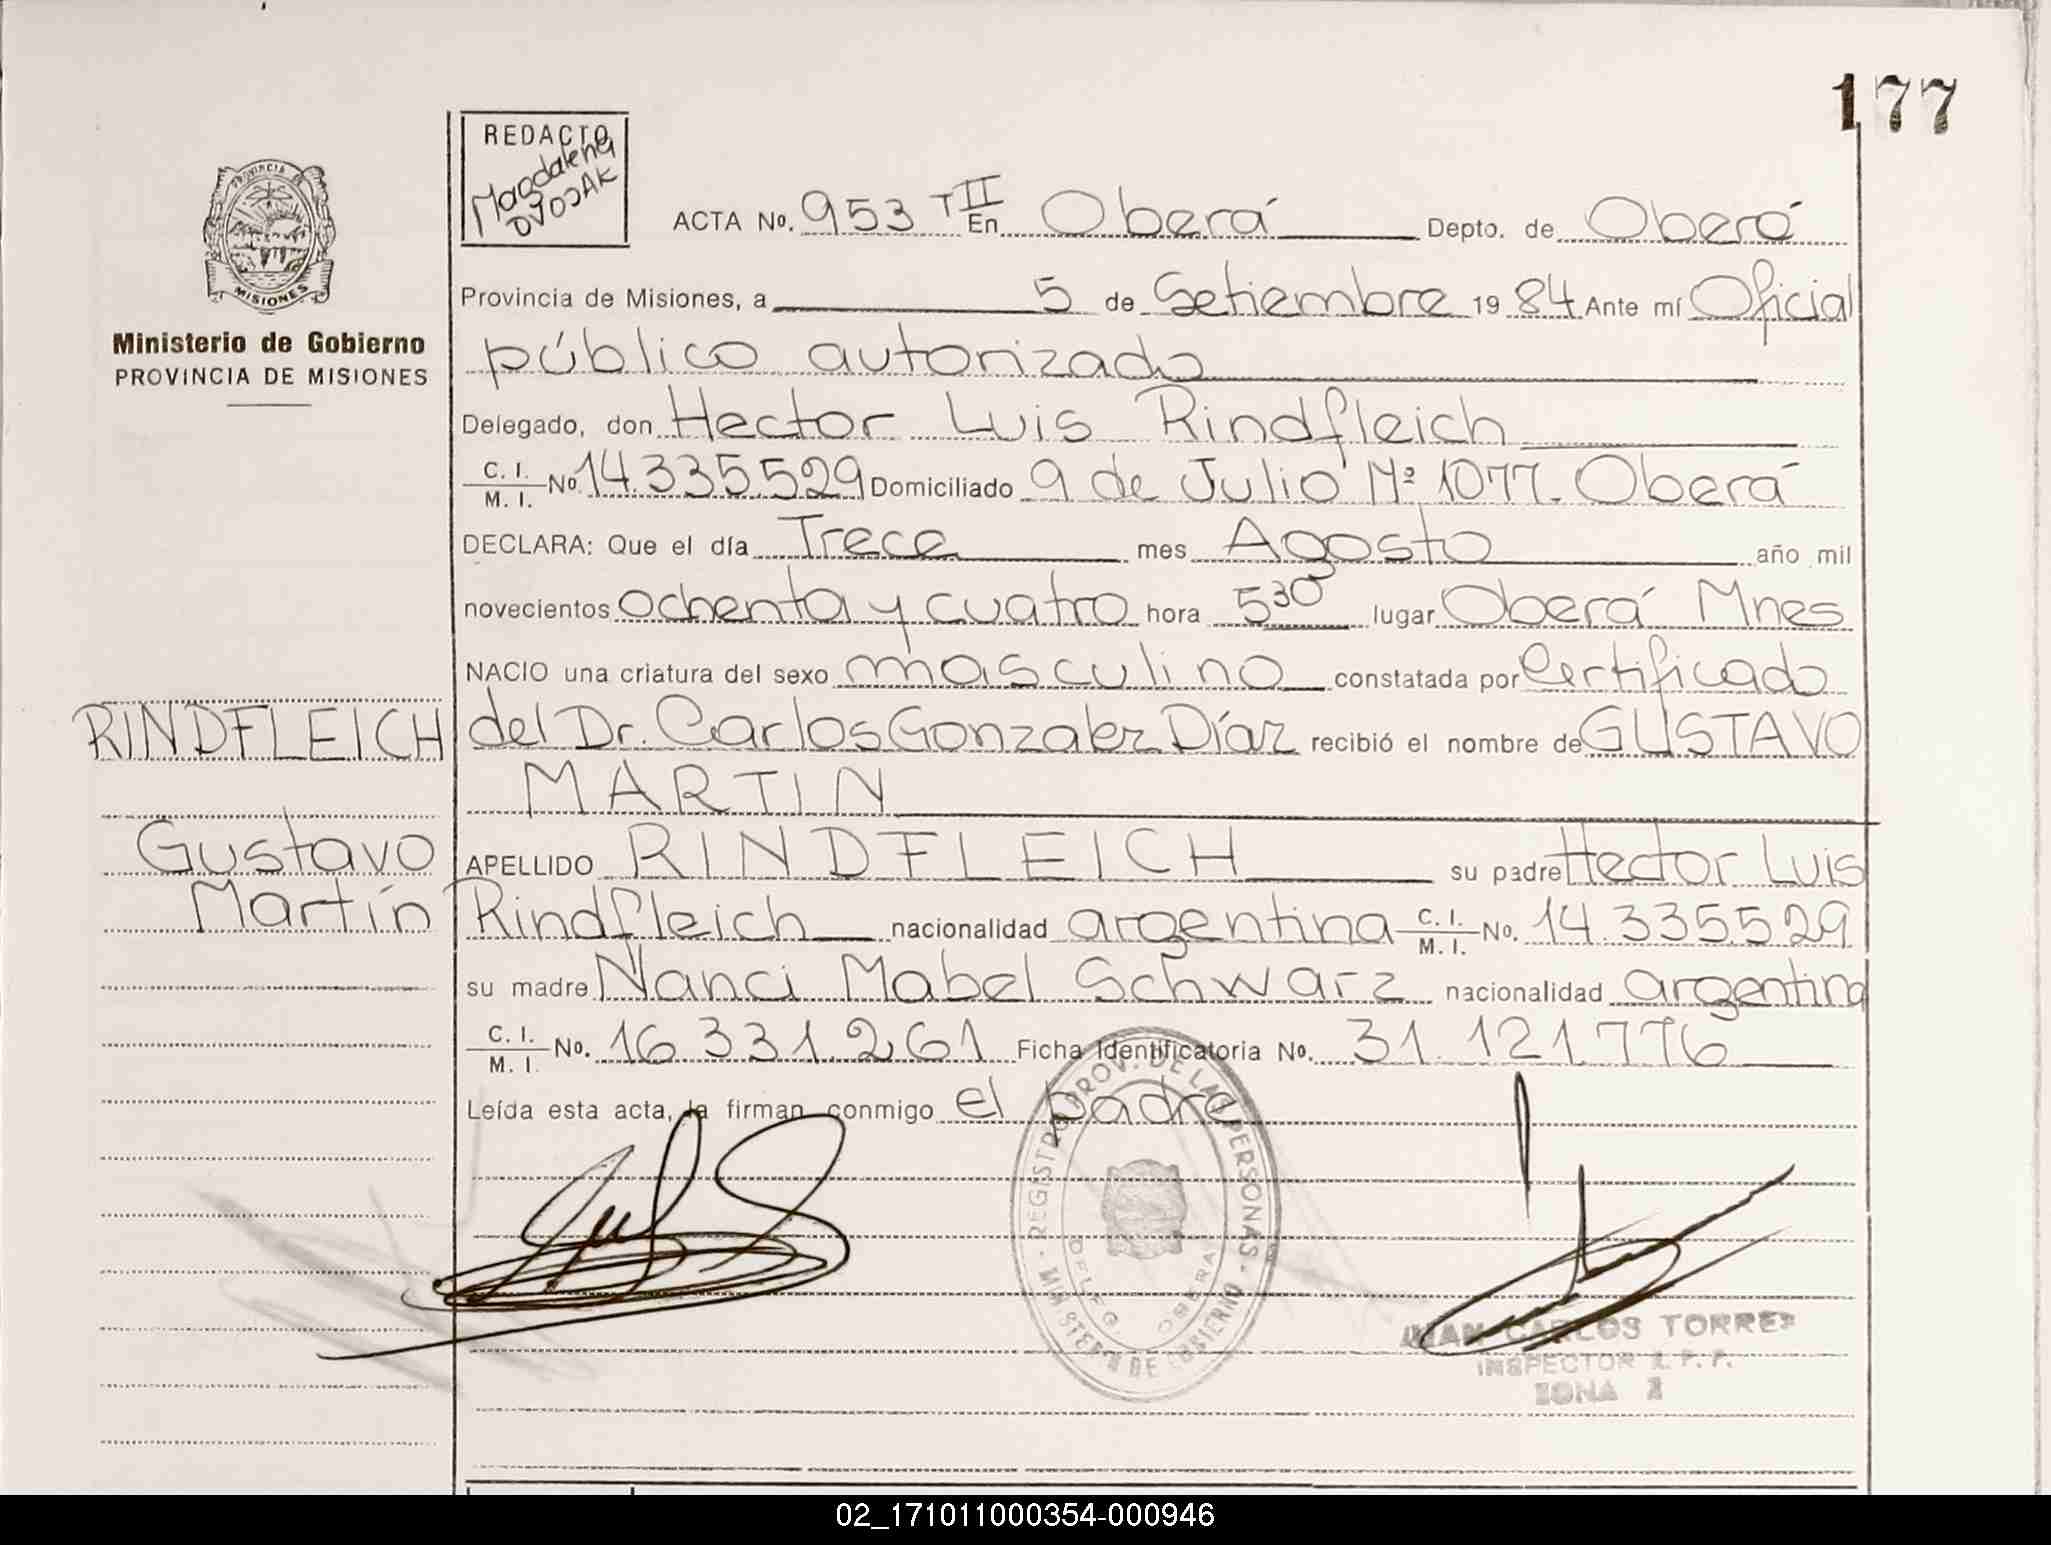 177
REDACTO
Magdalena
DVOJAK
PROVINCIA DE
MISIONES
Ministerio de Gobierno
PROVINCIA DE MISIONES
ACTA No. 953 T II En Oberá Depto. de Oberá
Provincia de Misiones, a 5 de Setiembre 19 84 Ante mí Oficial
público autorizado
Delegado, don Hector Luis Rindfleich
C. I. / M. I. No. 14.335.529 Domiciliado 9 de Julio Nº 1077. Oberá
DECLARA: Que el día Trece mes Agosto año mil
novecientos ochenta y cuatro hora 5 30 lugar Oberá Mnes
NACIO una criatura del sexo masculino constatada por Certificado
RINDFLEICH
del Dr. Carlos Gonzalez Díaz recibió el nombre de GUSTAVO
MARTIN
Gustavo
Martín
APELLIDO RINDFLEICH su padre Hector Luis
Rindfleich nacionalidad argentina C. I. / M. I. No. 14.335.529
su madre Nanci Mabel Schwarz nacionalidad argentina
C. I. / M. I. No. 16.331.261 Ficha Identificatoria No. 31.121.776
Leída esta acta, la firman conmigo el padre
REGISTRO PROV. DE LAS PERSONAS
MINISTERIO DE GOBIERNO
DELEG. OBERA
JUAN CARLOS TORRES
INSPECTOR R. P. P.
ZONA 2
02_171011000354-000946